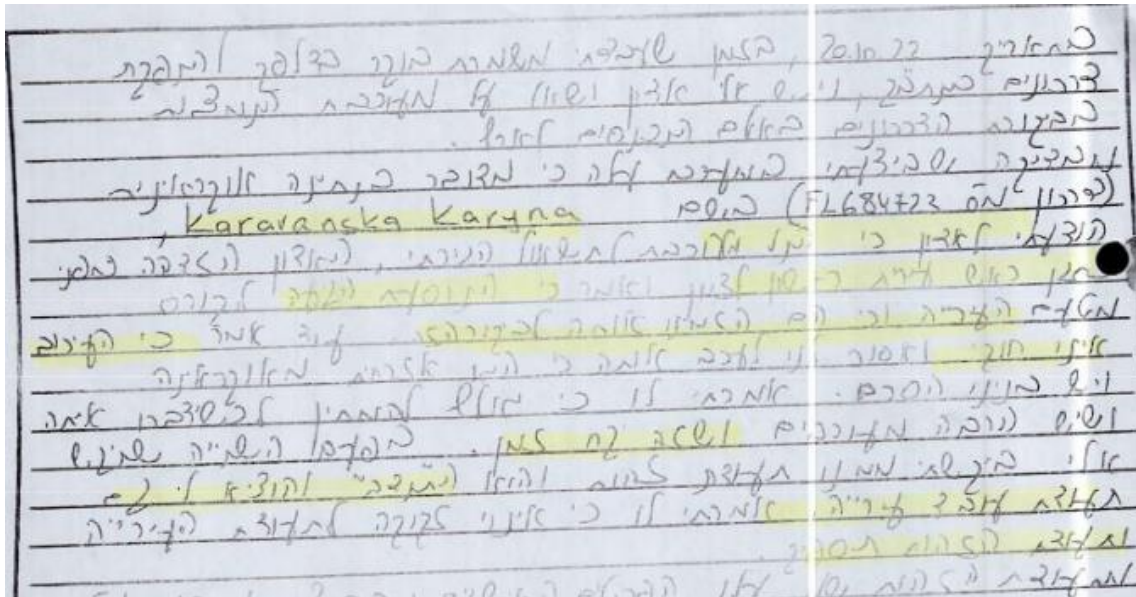 בתאריך 20.10.22, בזמן שעבדתי משמרת בוקר בדלפק להנפקת
דרכונים בנתב"ג, ניגש אלי אדון ושאל על מעוכבת לנמצאת
בביקורת הדרכונים באולם הנכנסים לארץ.
מבדיקה שביצעתי במערכת עלה כי מדובר בנתינה אוקראינית
(דרכון מס' FL684723) בשם Karavanska Karyna,
הודעתי לאדון כי הנ"ל מעוכבת לתשאול הגירתי, האדון הזדהה בפני
כסגן ראש עירית ראשון לציון ואמר כי הנוסעת הגיעה לקורס
מטעם העירייה וכי הם הזמינו אותה לביקור הזה. עוד אמר כי העיכוב
אינו חוקי ואסור לנו לעכב אותה כי הינה אזרחית מאוקראינה
ויש בנינו הסכם. אמרתי לו כי עליו להמתין לכשידברו איתה
ושיש הרבה מעוכבים ושזה יקח זמן. בפעם השנייה שניגש
אלי ביקשתי ממנו תעודת זהות והוא "התנדב" והוציא לי גם
תעודת עובד עירייה. אמרתי לו כי אינני זקוקה לתעודת העירייה
ותעודת הזהות תספיק.